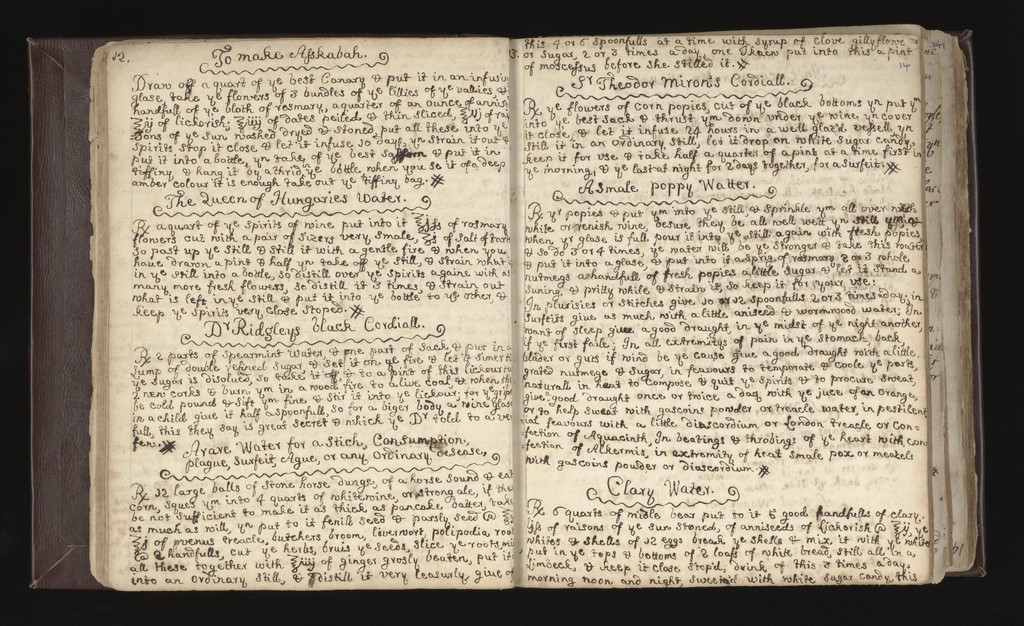 12.
To make Asskabah.
Draw off a quart of ye best Canary & put it in an infusing
glase, take ye flowers of 3 bundles of ye lillies of ye vallies &
handfull of ye bloth of rosmary, a quarter of an ounce of annis
℥ij of lickorish; ℥iiij of dates peiled & thin sliced, ℥ij of rai
sons of ye sun washed dryed & stoned, put all these into ye
spirits stop it close & let it infuse 10 days, yn strain it out &
put it into a bottle, yn take of ye best saffron & put it in
tiffiny & hang it by a thrid ye bottle, when you se it of a deep
amber colour it is enough take out ye tiffiny bag.
The Queen of Hungaries Water.
℞ a quart of ye spirits of wine put into it of rosmary
flowers cut with a pair of sizers very smale, of salt of tart
So past up ye still & still it with a gentle fire & when you
have drawn a pint & half yn take off ye still, & strain what
in ye still into a bottle, so distill over ye spirits againe with as
many more fresh flowers, so distill it 3 times, & strain out
what is left in ye still & put it into ye bottle to ye other, &
keep ye spiris very close stoped.
Dr Ridgleys black Cordiall.
℞ 2 parts of spearmint water, & one part of sack & put in a
lump of double refined sugar & set it on ye fire & let it simer ti
ye sugar is disolued, so take it off & to a pint of this lickour ta
2 new corks & burn ym in a wood fire to a live coal & when th
be cold pound & sift ym fine & stir it into ye lickour; for ye grip
in a child give it half a spoonfull, so for a biger body a wine glase
full, this they say is great secret & which ye Dr told to a ve
fen:
A rare Water for a stich, Consumption,
plague, surfeit, Ague, or any ordinary desease,
℞ 12 large balls of stone horse dunge; of a horse sound & eat
corn, sques ym into 4 quarts of whitewine, or strong ale, if the
be not sufficient to make it as thick as pancake batter, take
as much as will, yn put to it fenill seed & parsly seed @
℥j of venus treacle, butchers broom, livermort, polipodia roo
@ 2 handfulls, cut ye herbs, bruis ye seeds, slice ye roots, mi
all these together with ℥iiij of ginger grosly beaten, put it
into an ordinary still, & distill it very leasurly, give of
13.
this 4 or 6 spoonfulls at a time with syrup of clove gillyflowe
or sugar, 2 or 3 times a day, one I knew put into this a pint
of before she stilled it.
14
Sr Theodor Mirons Cordiall.
℞ ye flowers of corn popies, cut of ye black bottoms yn put ym
into ye best sack & thrust ym down under ye wine yn cover
it close, & let it infuse 24 hours in a well glaz'd vessell, yn
still it in an ordinary still, let it drop on white sugar candy,
keep it for use & take half a quarter of a pint at a time first in
ye morning, & ye last at night for 2 days together, for a surfeit:
A smale poppy Watter.
℞ yr popies & put ym into ye still & sprinkle ym all over with
white or renish wine, besure they be all well wett yn still ym &
when yr glase is full pour it into ye still again with fresh popies,
& so do 3 or 4 times, ye water will be ye stronger & take this water
& put it into a glase, & put into it a sprig of rosmary, 2 or 3 whole
nutmegs a handfull of fresh popies a little sugar & let it stand a
suning a pritty while & strain it, so keep it for your use:
In plurisies or stitches give 10 or 12 spoonfulls 2 or 3 times a day; in
surfeits give as much with a little aniseed & wormwood water; In
want of sleep give a good draught, in ye midst of ye night another,
if ye first faile; In all extremitys of pain in ye stomach, back,
blader or guts if wind be ye cause give a good draught with a little
grated nutmege & sugar, in feavours to temporate & coole ye parts,
naturall in heat to compose & quit ye spirits & to procure sweat,
give good draught once or twice a day, with ye juce of an orange,
or to help sweat with gascoins powder or treacle water in pestilen
cial feavours with a little diascordium or London treacle or con=
fection of Aquacinth, In beatings & throbings of ye heart with con=
fection of Alkermis, in extremity of heat smale pox or measels
with gascoins pouder or diascordium.
Clary Water.
℞ 6 quarts of midle bear put to it 6 good handfulls of clary,
of raisons of ye sun stoned, of anniseeds & lickorish @ ℥ij ye
whites & shells of 12 eggs break ye shells & mix it with ye white
put in ye tops & bottoms of 2 loafs of white bread, still all in a
Limbeck, & keep it close stop'd, drink of this 3 times a day,
morning noon and night, sweet'nd with white sugar candy, this